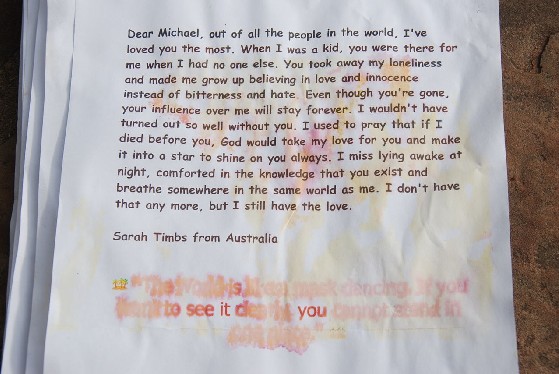 Dear Michael, out of all the people in the world, I've
loved you the most. When I was a kid, you were there for
me when I had no one else. You took away my loneliness
and made me grow up believing in love and innocence
instead of bitterness and hate. Even though you're gone,
your influence over me will stay forever. I wouldn't have
turned out so well without you. I used to pray that if I
died before you, God would take my love for you and make
it into a star to shine on you always. I miss lying awake at
night, comforted in the knowledge that you exist and
breathe somewhere in the same world as me. I don't have
that any more, but I still have the love.
Sarah Timbs from Australia
"The World is mask dancing. If you
want to see it you cannot stand in